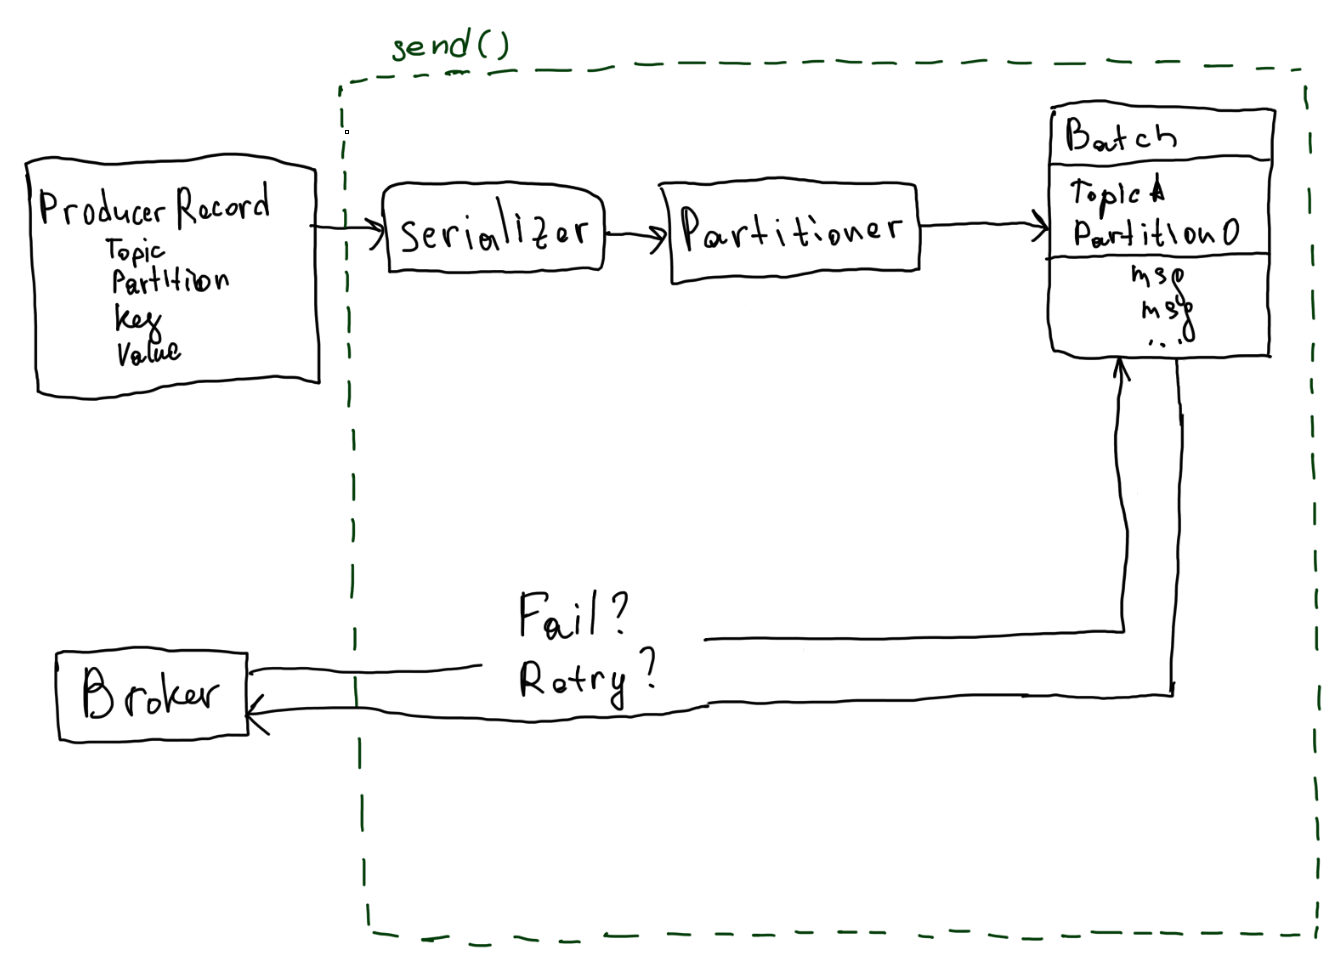 send()
Producer Record
Topic
Partition
key
Value
serializer
Partitioner
Batch
Topic A
Partition 0
msg
msg
...
Fail?
Retry?
Broker